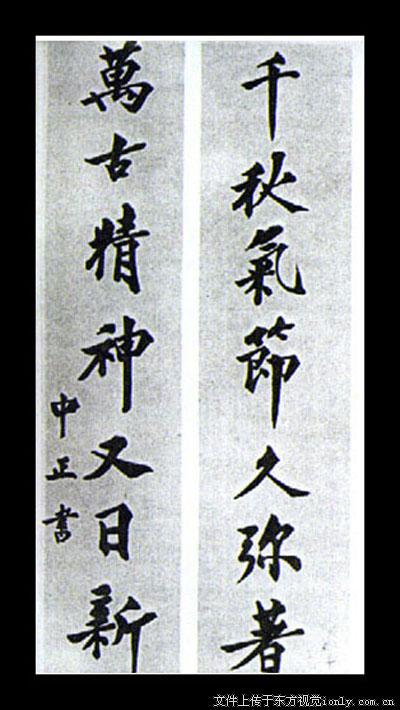 千秋氣節久弥著
萬古精神又日新
中正書
文件上传于东方视觉ionly.com.cn